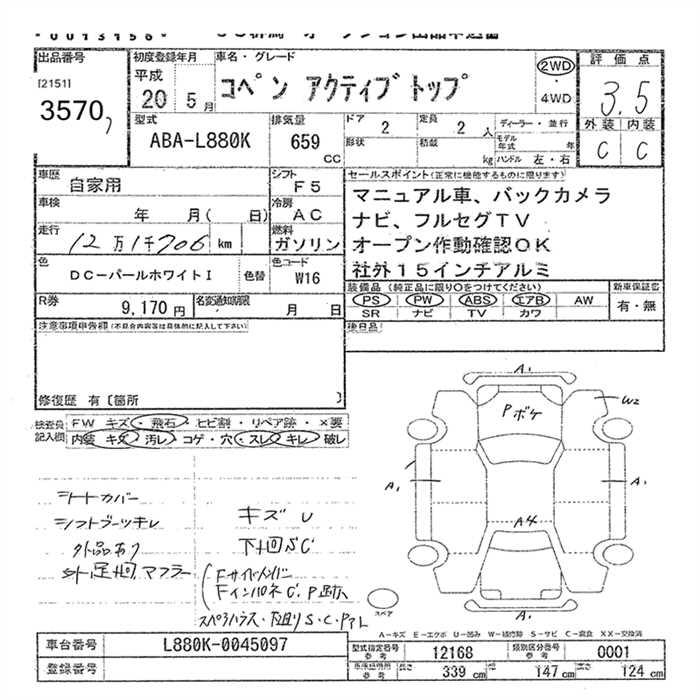 出品番号 初度登録年月 車名・グレード 評価点
[2151] 平成 コペン アクティブトップ 2WD 3.5
3570 20 5月 4WD 外装 内装
型式 排気量 ドア 2 定員 2人 ディーラー・並行 C C
ABA-L880K 659 CC 形状 積載 kg モデル年式 年
ハンドル 左・右
車歴 自家用 シフト F5 セールスポイント(正常に機能するものに限ります)
車検 年 月( 日) 冷房 AC マニュアル車、バックカメラ
走行 12万1千706 km 燃料 ガソリン ナビ、フルセグTV
オープン作動確認OK
色 DC-パールホワイトI 色替 色コード W16 社外15インチアルミ
装備品(純正品に限り○をつけてください) 新車保証書
R券 9,170円 名変通知期限 月 日 PS PW ABS エアB AW 有・無
SR ナビ TV カワ
注意事項申告欄(不具合内容等は具体的に記入して下さい) 後日品
修復歴 有〔箇所 〕
検査員記入欄 FW キズ・飛石・ヒビ割・リペア跡・×要
内装 キズ・汚レ・コゲ・穴・スレ・キレ・破レ
A1
Pボケ W2
A1 A1
A4
A1
シートカバー
シフトブーツキレ
外品あり
社外足回 マフラー
キズU
下廻S C
Fサイドメンバー
FインパネC.P
S・C・
スペア
A-キズ E-エクボ U-凹み W-補修跡 S-サビ C-腐食 XX-交換済
車台番号 L880K-0045097 型式指定番号 参考 12168 類別区分番号 参考 0001
登録番号 参考 長さ 339 cm 幅 147 cm 高さ 124 cm